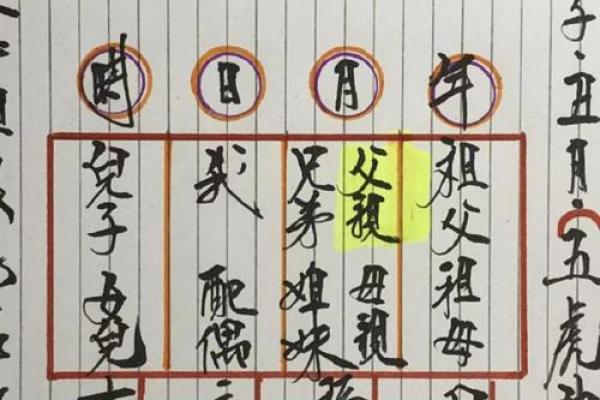 子丑月·五虎
年
祖父 祖母
月
父親 母親
兄弟 姐妹
日
我 配偶
時
兒子 女兒